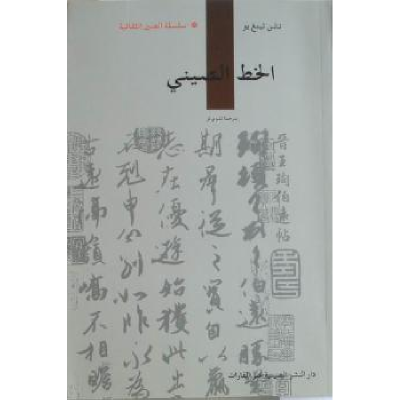 تشن تينغ يو • سلسلة الصين الثقافية
الخط الصيني
晉王珣伯遠帖
珣頓首頓首伯遠勝業
期群從之寶自以羸
志在優遊始獲此出
剋申分別如昨永為
古遠隔嶺嶠不相瞻
دار النشر الصينية عبر القارات